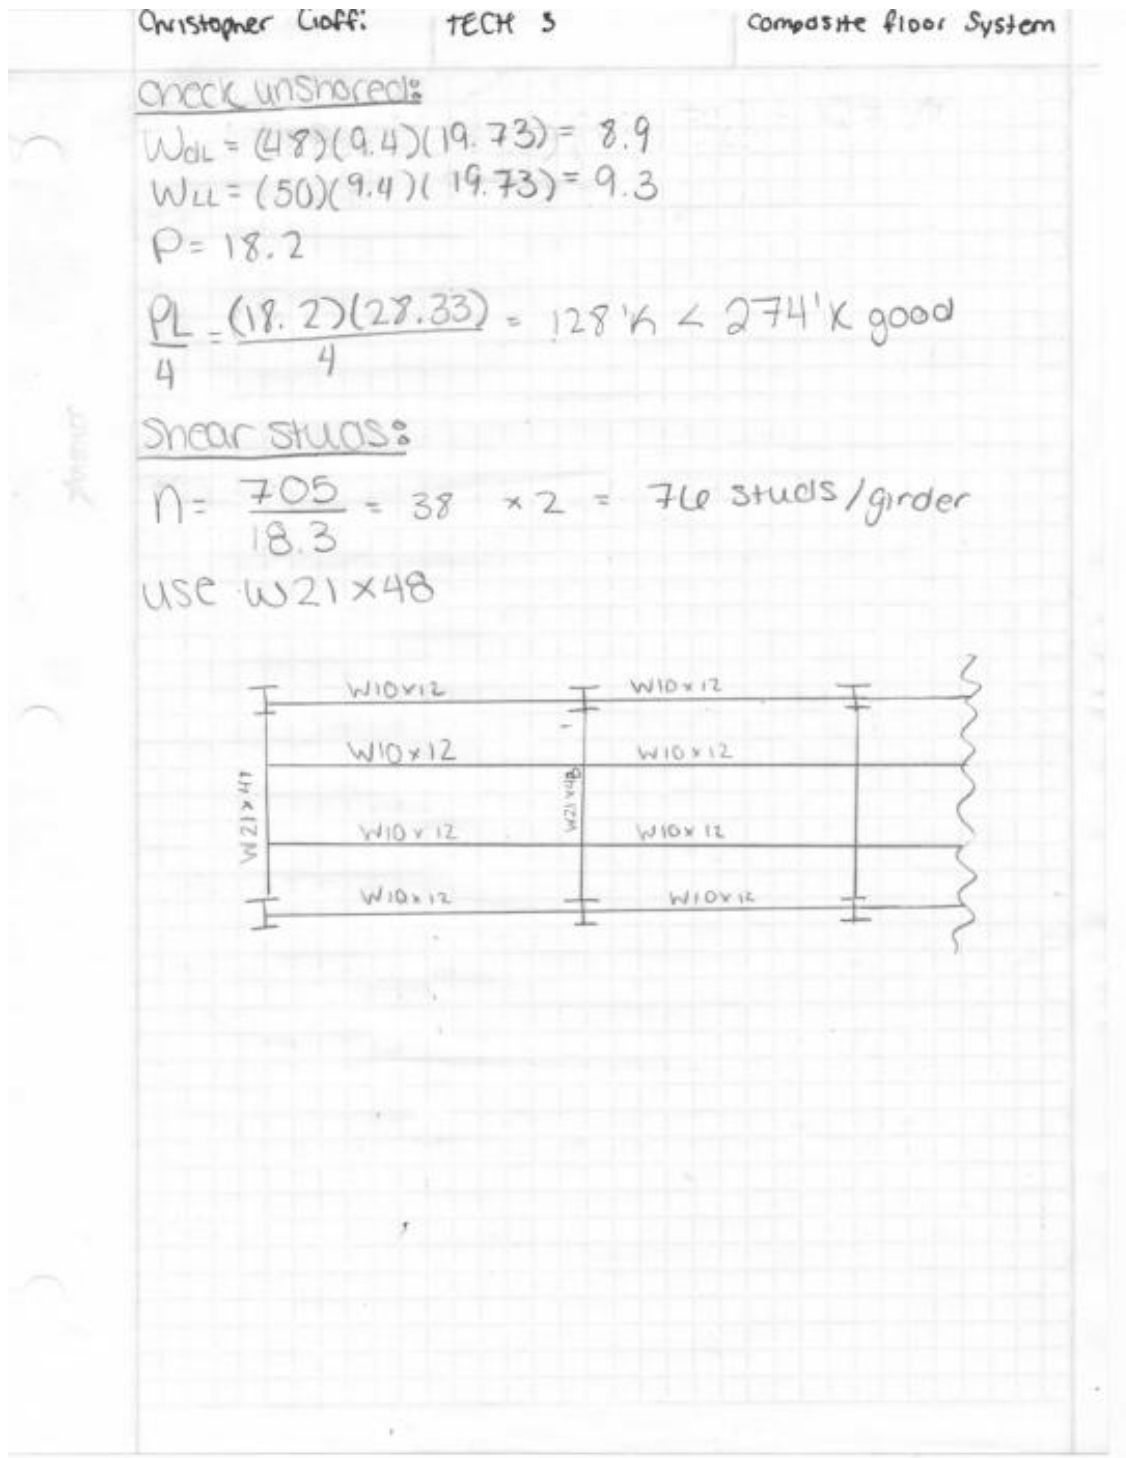 Christopher Cioffi TECH 3 Composite floor System
Check unshored:
WDL = (48)(9.4)(19.73) = 8.9
WLL = (50)(9.4)(19.73) = 9.3
P = 18.2
PL/4 = (18.2)(28.33)/4 = 128'K < 274'K good
Shear studs:
n = 705/18.3 = 38 × 2 = 76 studs/girder
use W21×48
W10×12 W10×12
W10×12 W10×12
W21×48 W21×48
W10×12 W10×12
W10×12 W10×12